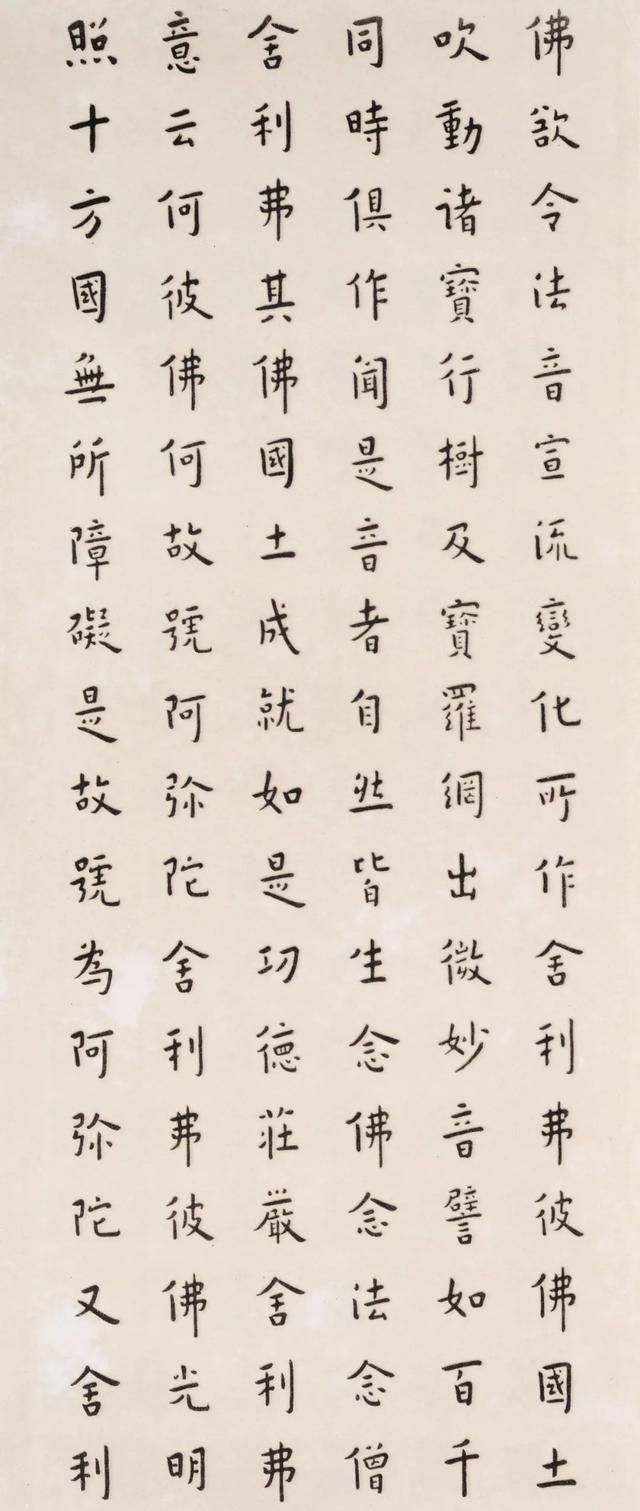 佛欲令法音宣流變化所作舍利弗彼佛國土
吹動諸寶行樹及寶羅網出微妙音譬如百千
同時俱作聞是音者自然皆生念佛念法念僧
舍利弗其佛國土成就如是功德莊嚴舍利弗
意云何彼佛何故號阿弥陀舍利弗彼佛光明
照十方國無所障礙是故號為阿弥陀又舍利